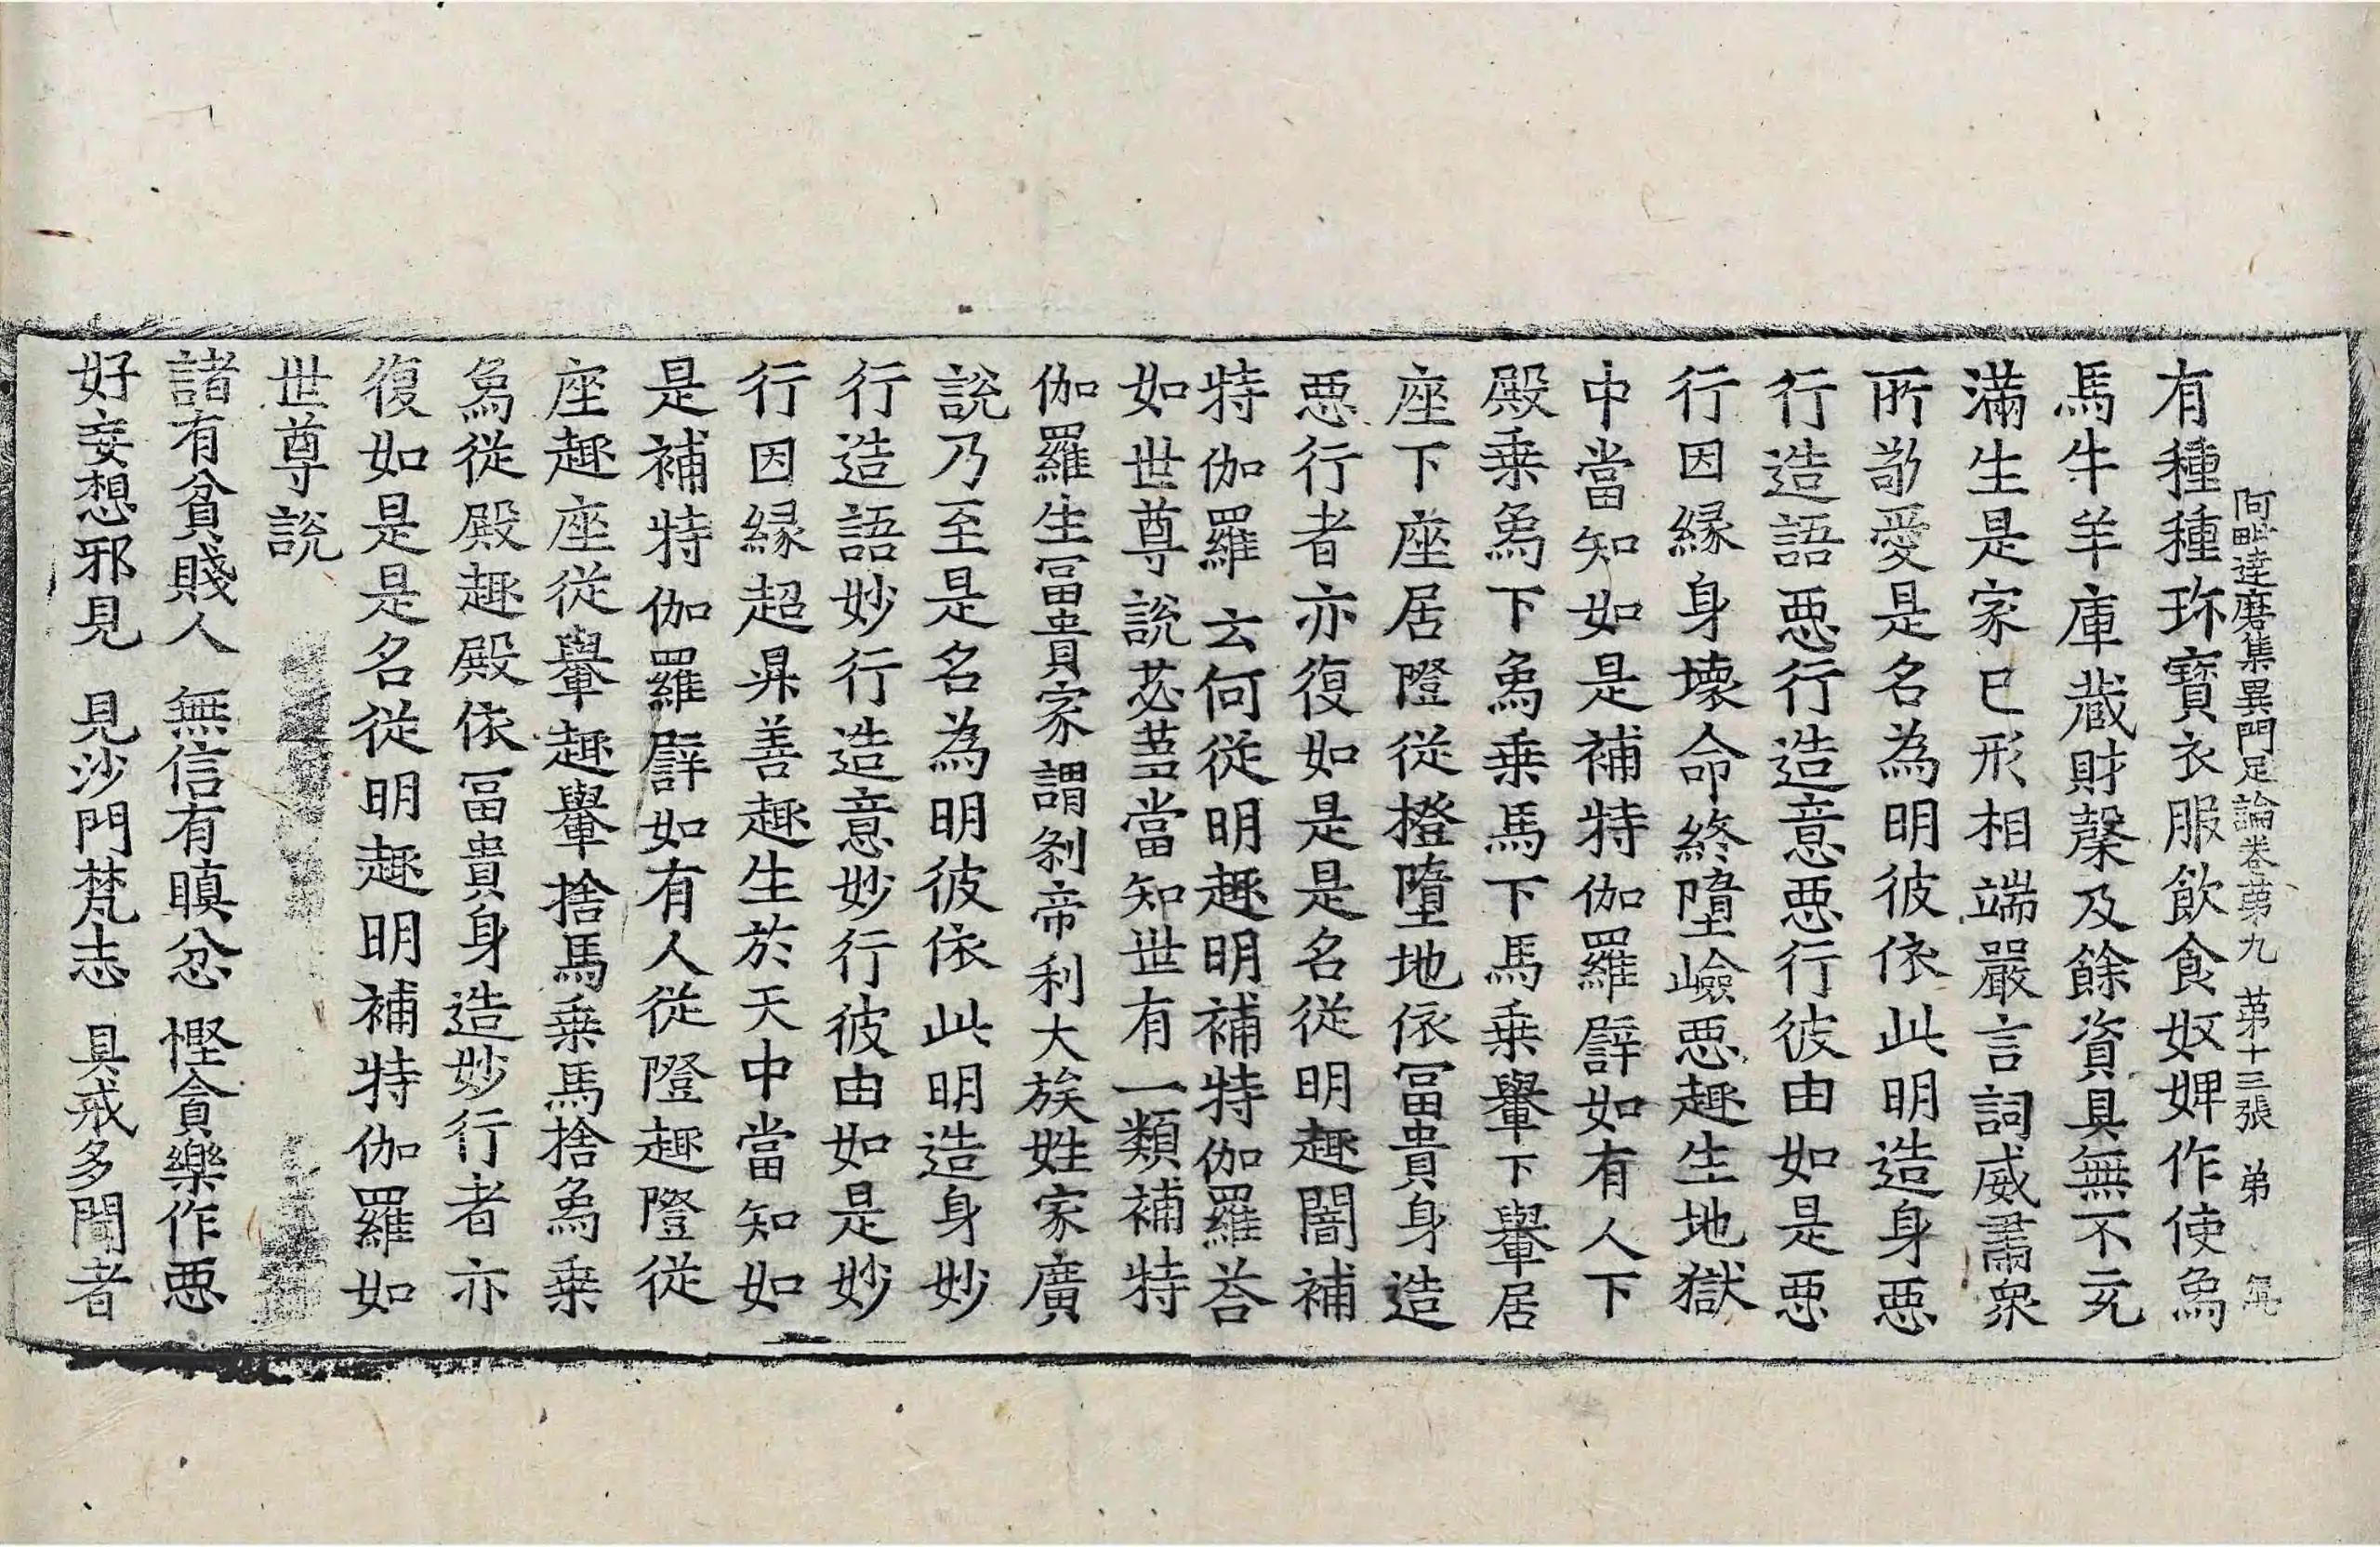 阿毗達磨集異門足論卷第九 第十三張 弟
有種種珎寶衣服飲食奴婢作使𤉢
馬牛羊庫蔵財糓及餘資具無不充
滿生是家已形相端嚴言詞威肅衆
所敬愛是名為明彼依此明造身惡
行造語惡行造意惡行彼由如是惡
行因緣身壞命終墮嶮惡趣生地獄
中當知如是補特伽羅譬如有人下
殿乗象下象乗馬下馬乗轝下轝居
座下座居隥從橙墮地依冨貴身造
惡行者亦復如是是名從明趣闇補
特伽羅 云何從明趣明補特伽羅荅
如世尊說苾蒭當知世有一類補特
伽羅生冨貴家謂剎帝利大族姓家廣
說乃至是名為明彼依此明造身妙
行造語妙行造意妙行彼由如是妙
行因緣超昇善趣生於天中當知如
是補特伽羅譬如有人從隥趣隥從
座趣座從轝趣轝捨馬乗馬捨象乗
象從殿趣殿依冨貴身造妙行者亦
復如是是名從明趣明補特伽羅如
世尊說
諸有貧賤人 無信有瞋忿 慳貪樂作惡
好妄想邪見 見沙門梵志 具戒多聞者